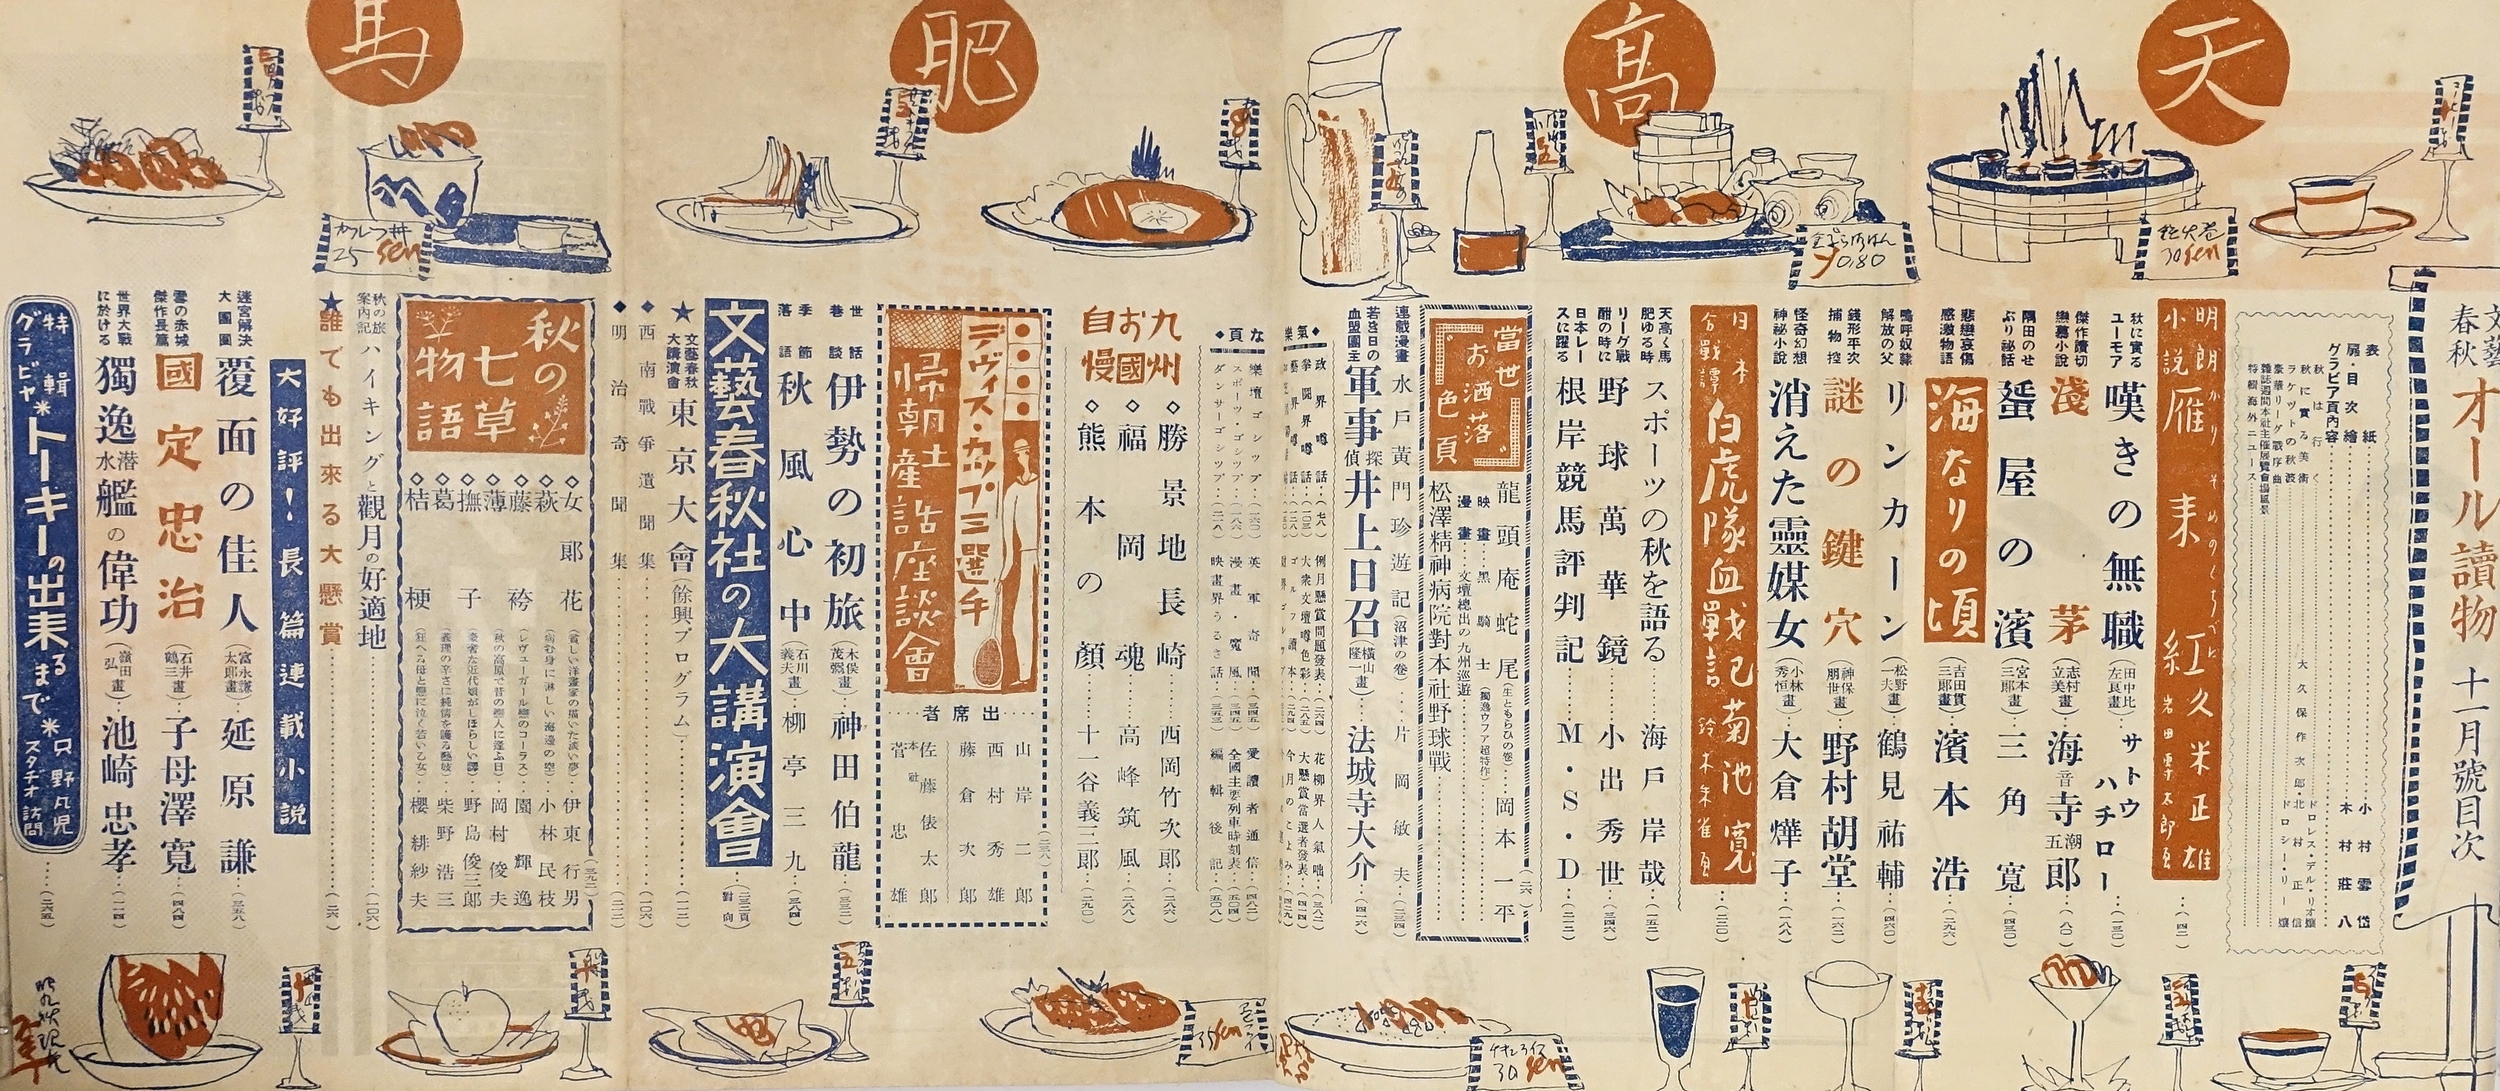 天
高
肥
馬
文藝春秋 オール讀物 十一月號目次
表紙……小村雪岱
扉・目次繪……木村莊八
グラビア頁内容
秋は行く
秋に實る美術
ラケツトの秋波……ドロレス・デル・リオ孃
豪華リーグ戰序曲
特輯海外ニュース……ドロシー・リー孃
大久保作次郎
北村正信
明朗小説 雁来紅 久米正雄 岩田専太郎画……(四二)
秋に實るユーモア 嘆きの無職 (田中比左良畫)…サトウハチロー……(一三〇)
傑作讀切戀慕小説 淺茅 (志村立美畫)…海音寺潮五郎…(八〇)
隅田のせぶり秘話 蜑屋の濱 (宮本三郎畫)…三角寛…(四三〇)
悲戀哀傷感激物語 海なりの頃 (吉田貫三郎畫)…濱本浩…(二九六)
嗚呼奴隷解放の父 リンカーン (松野一夫畫)…鶴見祐輔…(四六〇)
錢形平次捕物控 謎の鍵穴 (神保朋世畫)…野村胡堂…(一六二)
怪奇幻想神秘小説 消えた靈媒女 (小林秀恒畫)…大倉燁子…(一八八)
日本合戰譚 白虎隊血戰記 菊池寛 鈴木朱雀画…(二二〇)
天高く馬肥ゆる時 スポーツの秋を語る……海戸岸哉…(一五二)
リーグ戰酣の時に 野球萬華鏡……小出秀世…(三四六)
日本レースに躍る 根岸競馬評判記……M・S・D…(二二二)
當世お洒落色頁
龍頭庵蛇尾(生ともらひの卷)……岡本一平
映畫……黑騎士(獨逸ウフア超特作)
漫畫……文壇總出の九州巡遊
松澤精神病院對本社野球戰
連載漫畫 水戸黄門珍遊記(沼津の卷)…片岡敏夫…(二三四)
若き日の血盟團主 軍事探偵 井上日召 (横山隆一畫)…法城寺大介…(四一六)
政界噂話…(七八)
拳鬪界噂話…(一〇三)
藝界噂話…(一二八)
例月懸賞問題發表…(二六四)
大衆文壇噂色彩…(二八五)
ゴルフ讀本…(二九四)
花柳界人氣咄…(三八二)
大懸賞當選者發表…(四一四)
今月のこよみ…(四二九)
樂壇ゴシツプ…(一六〇)
スポーツ・ゴシツプ…(一八六)
ダンサーゴシツプ…(二一八)
英軍奇聞…(三四五)
漫畫・魔風…(三四五)
映畫界うるさ話…(三五三)
愛讀者通信…(四八二)
全國主要列車時刻表…(五〇四)
編輯後記…(五〇八)
九州お國自慢
◇勝景地長崎……西岡竹次郎…(二八六)
◇福岡魂……高峰筑風…(二八八)
◇熊本の顏……十一谷義三郎…(二九〇)
デヴィス・カップ三選手
帰朝土産話座談會
出席者
山岸二郎
西村秀雄
藤倉次郎
佐藤俵太郎
本社 菅忠雄
世話巷談 伊勢の初旅 (木俣茂彌畫)…神田伯龍…(三三二)
季節落語 秋風心中 (石川義夫畫)…柳亭三九…(三八四)
文藝春秋社の大講演會…(對向三三頁)
★文藝春秋大講演會 東京大會(餘興プログラム)…(一一二)
◆西南戰爭遺聞集…(一〇六)
◆明治奇聞集…(二一二)
秋の七草物語
◇女郎花 (貧しい洋畫家の描いた淡い夢)…伊東行男
◇萩 (病む身に淋しい海邊の空)…小林民枝
◇藤袴 (レヴユーガール戀のコーラス)…園輝逸
◇薄 (秋の高原で昔の戀人に逢ふ日)…岡村俊夫
◇撫子 (豪奢な近代娘がしほらしい譯)…野島俊三郎
◇葛 (義理の辛さに純情を護る藝妓)…柴野浩三
◇桔梗 (狂へる母と戀に泣く若い乙女)…櫻緋紗夫
(三九二)
秋の旅案内記 ハイキングと觀月の好適地…(一〇六)
★誰でも出來る大懸賞…(二六)
大好評！長篇連載小説
迷宮解決大團圓 覆面の佳人 (富永謙太郎畫)…延原謙…(三五八)
雪の赤城傑作長篇 國定忠治 (石井鶴三畫)…子母澤寛…(四八四)
世界大戰に於ける 獨逸潜水艦の偉功 (嶺田弘畫)…池崎忠孝…(一一四)
特輯グラビヤ＊トーキーの出来るまで＊只野凡児スタヂオ訪問…(二六五)
カルつ丼 25 sen
天ぷらごはん 0.80
鉄火巻 30 sen
35 sen
チキンライス 30 sen